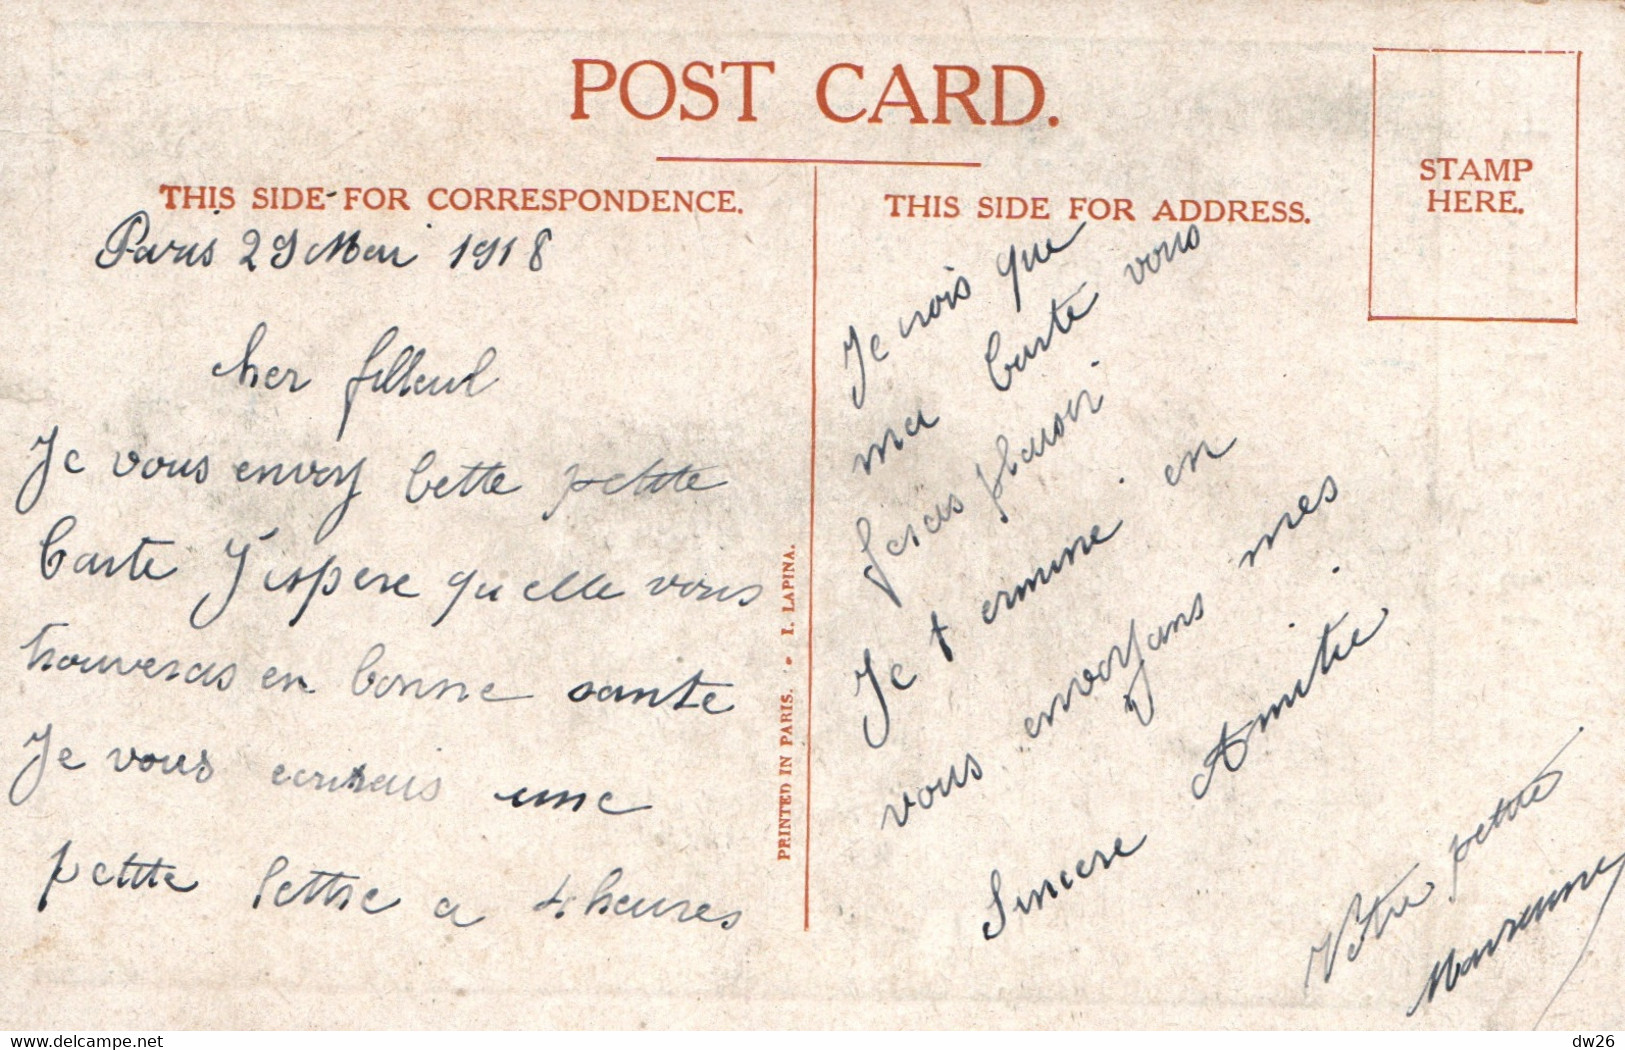 POST CARD.
THIS SIDE FOR CORRESPONDENCE.
Paris 29 Mai 1918
cher filleul
Je vous envoy Cette petite
Carte J'espere qu elle vous
trouveras en bonne sante
Je vous ecrirais une
petite lettre a 4 heures
PRINTED IN PARIS. - I. LAPINA.
THIS SIDE FOR ADDRESS.
STAMP
HERE.
Je crois que
ma Carte vous
feras plaisir
Je termine en
vous envoyans mes
Sincere Amitie
Votre petite
Marenne
delcampe.net
dw26